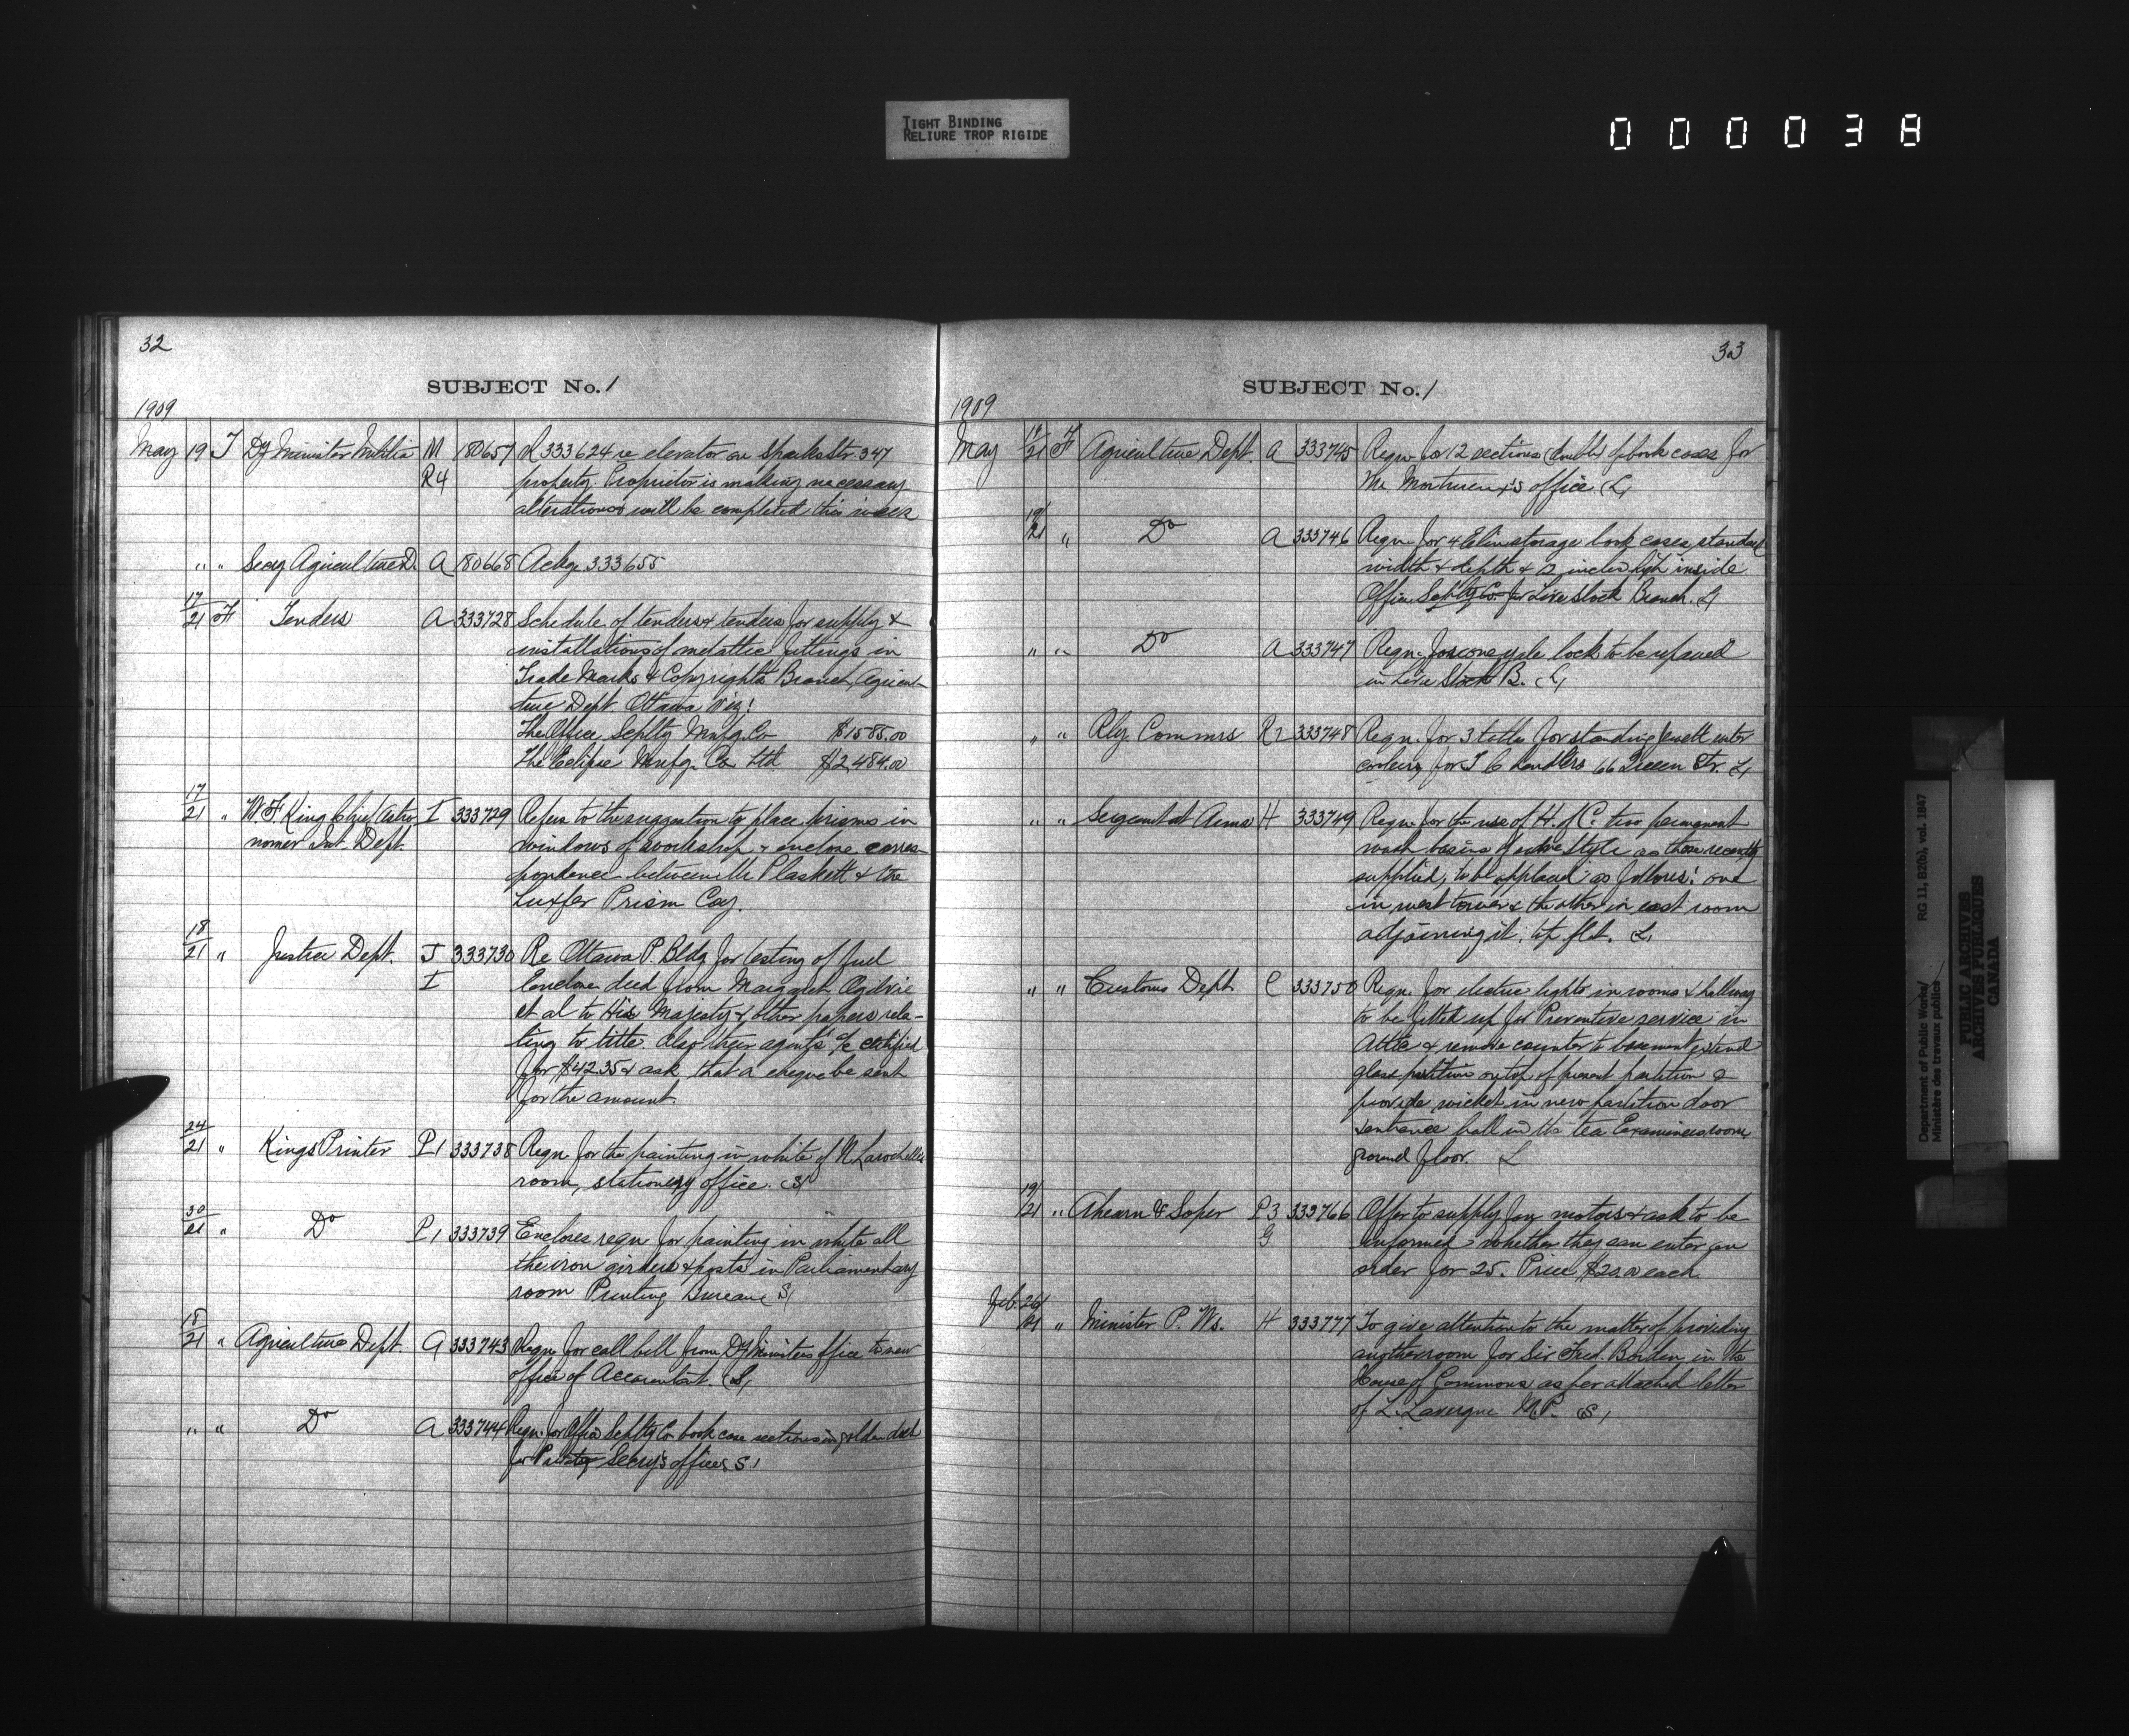 TIGHT BINDING
RELIURE TROP RIGIDE
000038
32
SUBJECT No. 1
1909
May 19 T Dy Minister Militia M 180657 R 333624 re elevator on Sparks Str. 347
R4 property. Proprietor is making necessary
alterations will be completed this week
" " Secy Agriculture D. A 180668 Ackge 333655
17/21 F Tenders A 333728 Schedule of tenders & tenders for supply &
installations of metallic fittings in
Trade Marks & Copyrights Branch, Agricul-
ture Dept. Ottawa Viz:
The Office Scplty Mnfg. Co $1585.00
The Eclipse Mnfg. Co Ltd $2,484.00
17/21 " W. F. King Chief Astro I 333729 Refers to the suggestion to place prisms in
nomer Int. Dept. windows of workshop & enclose corres-
pondence between Mr Plaskett & the
Luxfer Prism Coy.
18/21 " Justice Dept. J 333730 Re Ottawa P. Bldg for testing of fuel
I Enclose deed from Margaret Ogilvie
et al to His Majesty & other papers rela-
ting to title. Also their agent's a/c certified
for $42.35 & ask that a cheque be sent
for the amount.
24/21 " Kings Printer P1 333738 Reqn. for the painting in white of N. Larochelle
room, stationery office. S/
20/21 " Do P1 333739 Encloses reqn for painting in white all
the iron girders & posts in Parliamentary
room Printing Bureau S/
18/21 " Agriculture Dept. A 333743 Reqn for call bell from Dy Ministers office to new
office of Accountant. S/
" " Do A 333744 Reqn. for Office Scplty Co book case sections in golden
for Private Secry's offices S/
33
SUBJECT No. 1
1909
May 19/21 F Agriculture Dept. A 333745 Reqn for 12 sections (double) of book cases for
Mr office L/
19/21 " Do A 333746 Reqn for 4 storage book cases, standard
width & depth & 12 inches high inside
Office Scplty Co. for Live Stock Branch. L/
" " Do A 333747 Reqn. for one yale lock to be repaired
in Live Stock B. L/
" " Rly. Commrs R2 333748 Reqn. for 3 for standing water
coolers, for 66 Queen Str. L/
" " Sergeant at Arms H 333749 Reqn for the use of H. of C. two permanent
wash basins of style as those recently
supplied, to be placed as follows: one
in west tower & the other in east room
adjoining it, top flat. L/
" " Customs Dept C 333750 Reqn. for electric lights in rooms & hallway
to be fitted up for Preventive service in
Attic & remove counter to basement, extend
glass partition on top of present partition &
provide wicket in new partition door
entrance hall in the tea Examiners room,
ground floor. L
19/21 " Ahearn & Soper P3 333766 Offer to supply fan motors & ask to be
G informed whether they can enter an
order for 25. Price $20.00 each.
Feb. 26/21 " Minister P. Ws. H 333777 To give attention to the matter of providing
another room for Sir Fred. Borden in the
House of Commons as per attached letter
of L. Lavergne M.P. S/
Department of Public Works/ RG 11, B2(b), vol. 1847
Ministère des travaux publics
PUBLIC ARCHIVES
ARCHIVES PUBLIQUES
CANADA